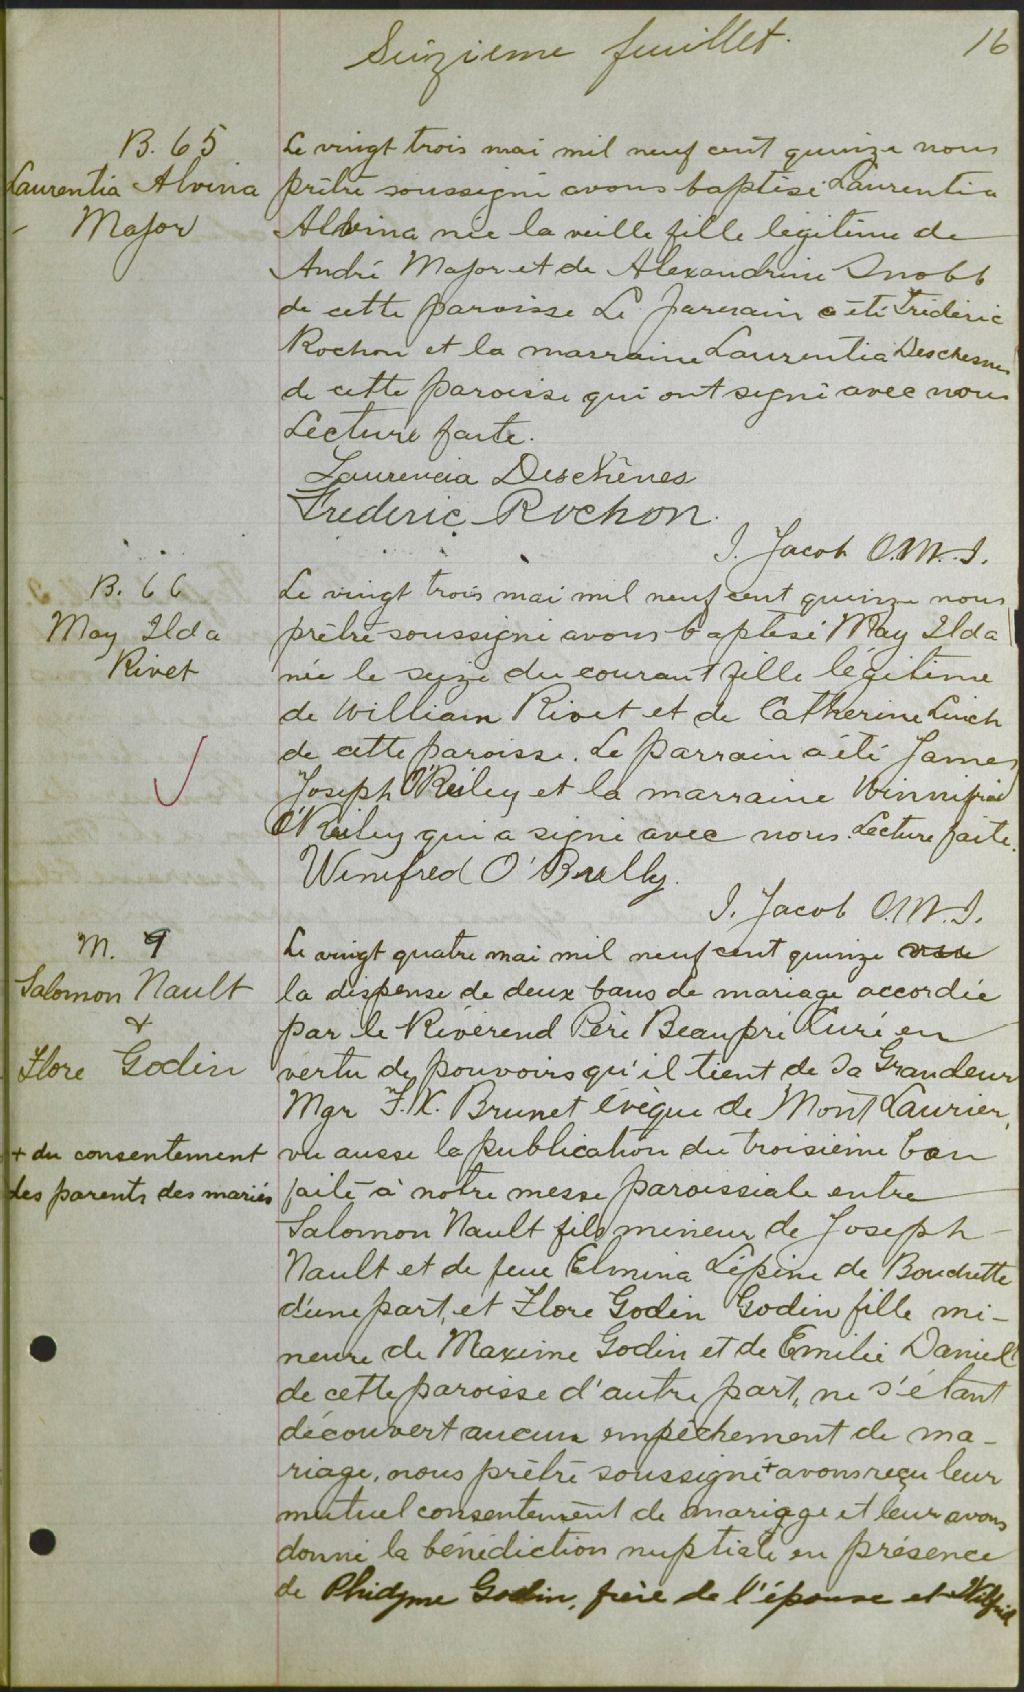 Seizieme feuillet.
16
B. 65
Laurentia Alvina
Major
Le vingt trois mai mil neuf cent quinze nous
prêtre soussigné avons baptisé Laurentia
Alvina née la veille fille légitime de
André Major et de Alexandrine Snobb
de cette paroisse Le parrain a été Fréderic
Rochon et la marraine Laurentia Deschesnes
de cette paroisse qui ont signé avec nous
Lecture faite.
Laurencia Deschênes
Frederic Rochon.
J. Jacob O.M.I.
B. 66
May Ilda
Rivet
Le vingt trois mai mil neuf cent quinze nous
prêtre soussigné avons baptisé May Ilda
née le seize du courant fille légitime
de William Rivet et de Catherine Linch
de cette paroisse. Le parrain a été James
Joseph O'Reiley et la marraine Winnifried
O'Reiley qui a signé avec nous. Lecture faite.
Winifred O'Reilly.
J. Jacob O.M.I.
M. 9
Salomon Nault
&
Flore Godin
+ du consentement
des parents des mariés
Le vingt quatre mai mil neuf cent quinze vu
la dispense de deux bans de mariage accordée
par le Révérend Père Beaupré Curé en
vertu de pouvoirs qu'il tient de Sa Grandeur
Mgr F.X. Brunet évêque de Mont Laurier,
vu aussi la publication du troisième ban
faite à notre messe paroissiale entre
Salomon Nault fils mineur de Joseph
Nault et de feue Elmina Lépine de Bouchette
d'une part, et Flore Godin Godin fille mi-
neure de Maxime Godin et de Emilie Daniel
de cette paroisse d'autre part, ne s'étant
découvert aucun empêchement de ma-
riage, nous prêtre soussigné + avons reçu leur
mutuel consentement de mariage et leur avons
donné la bénédiction nuptiale en présence
de Phidyme Godin, frère de l'épouse et Wilfrid